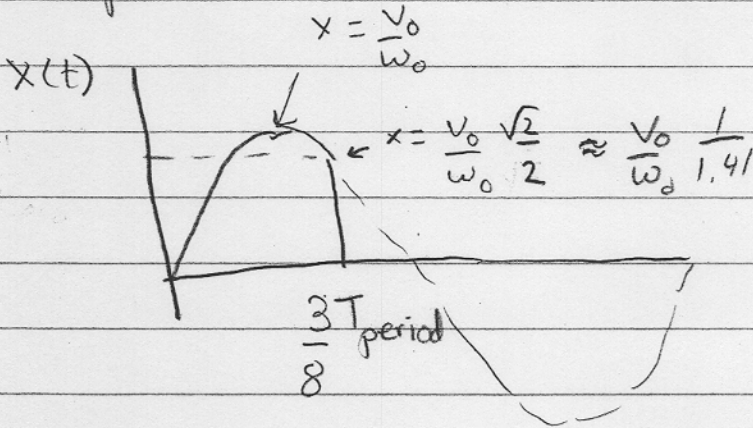 x = v₀/ω₀
x(t)
x = v₀/ω₀ √2/2 ≈ v₀/ω₀ 1/1.41
3/8 Tperiod